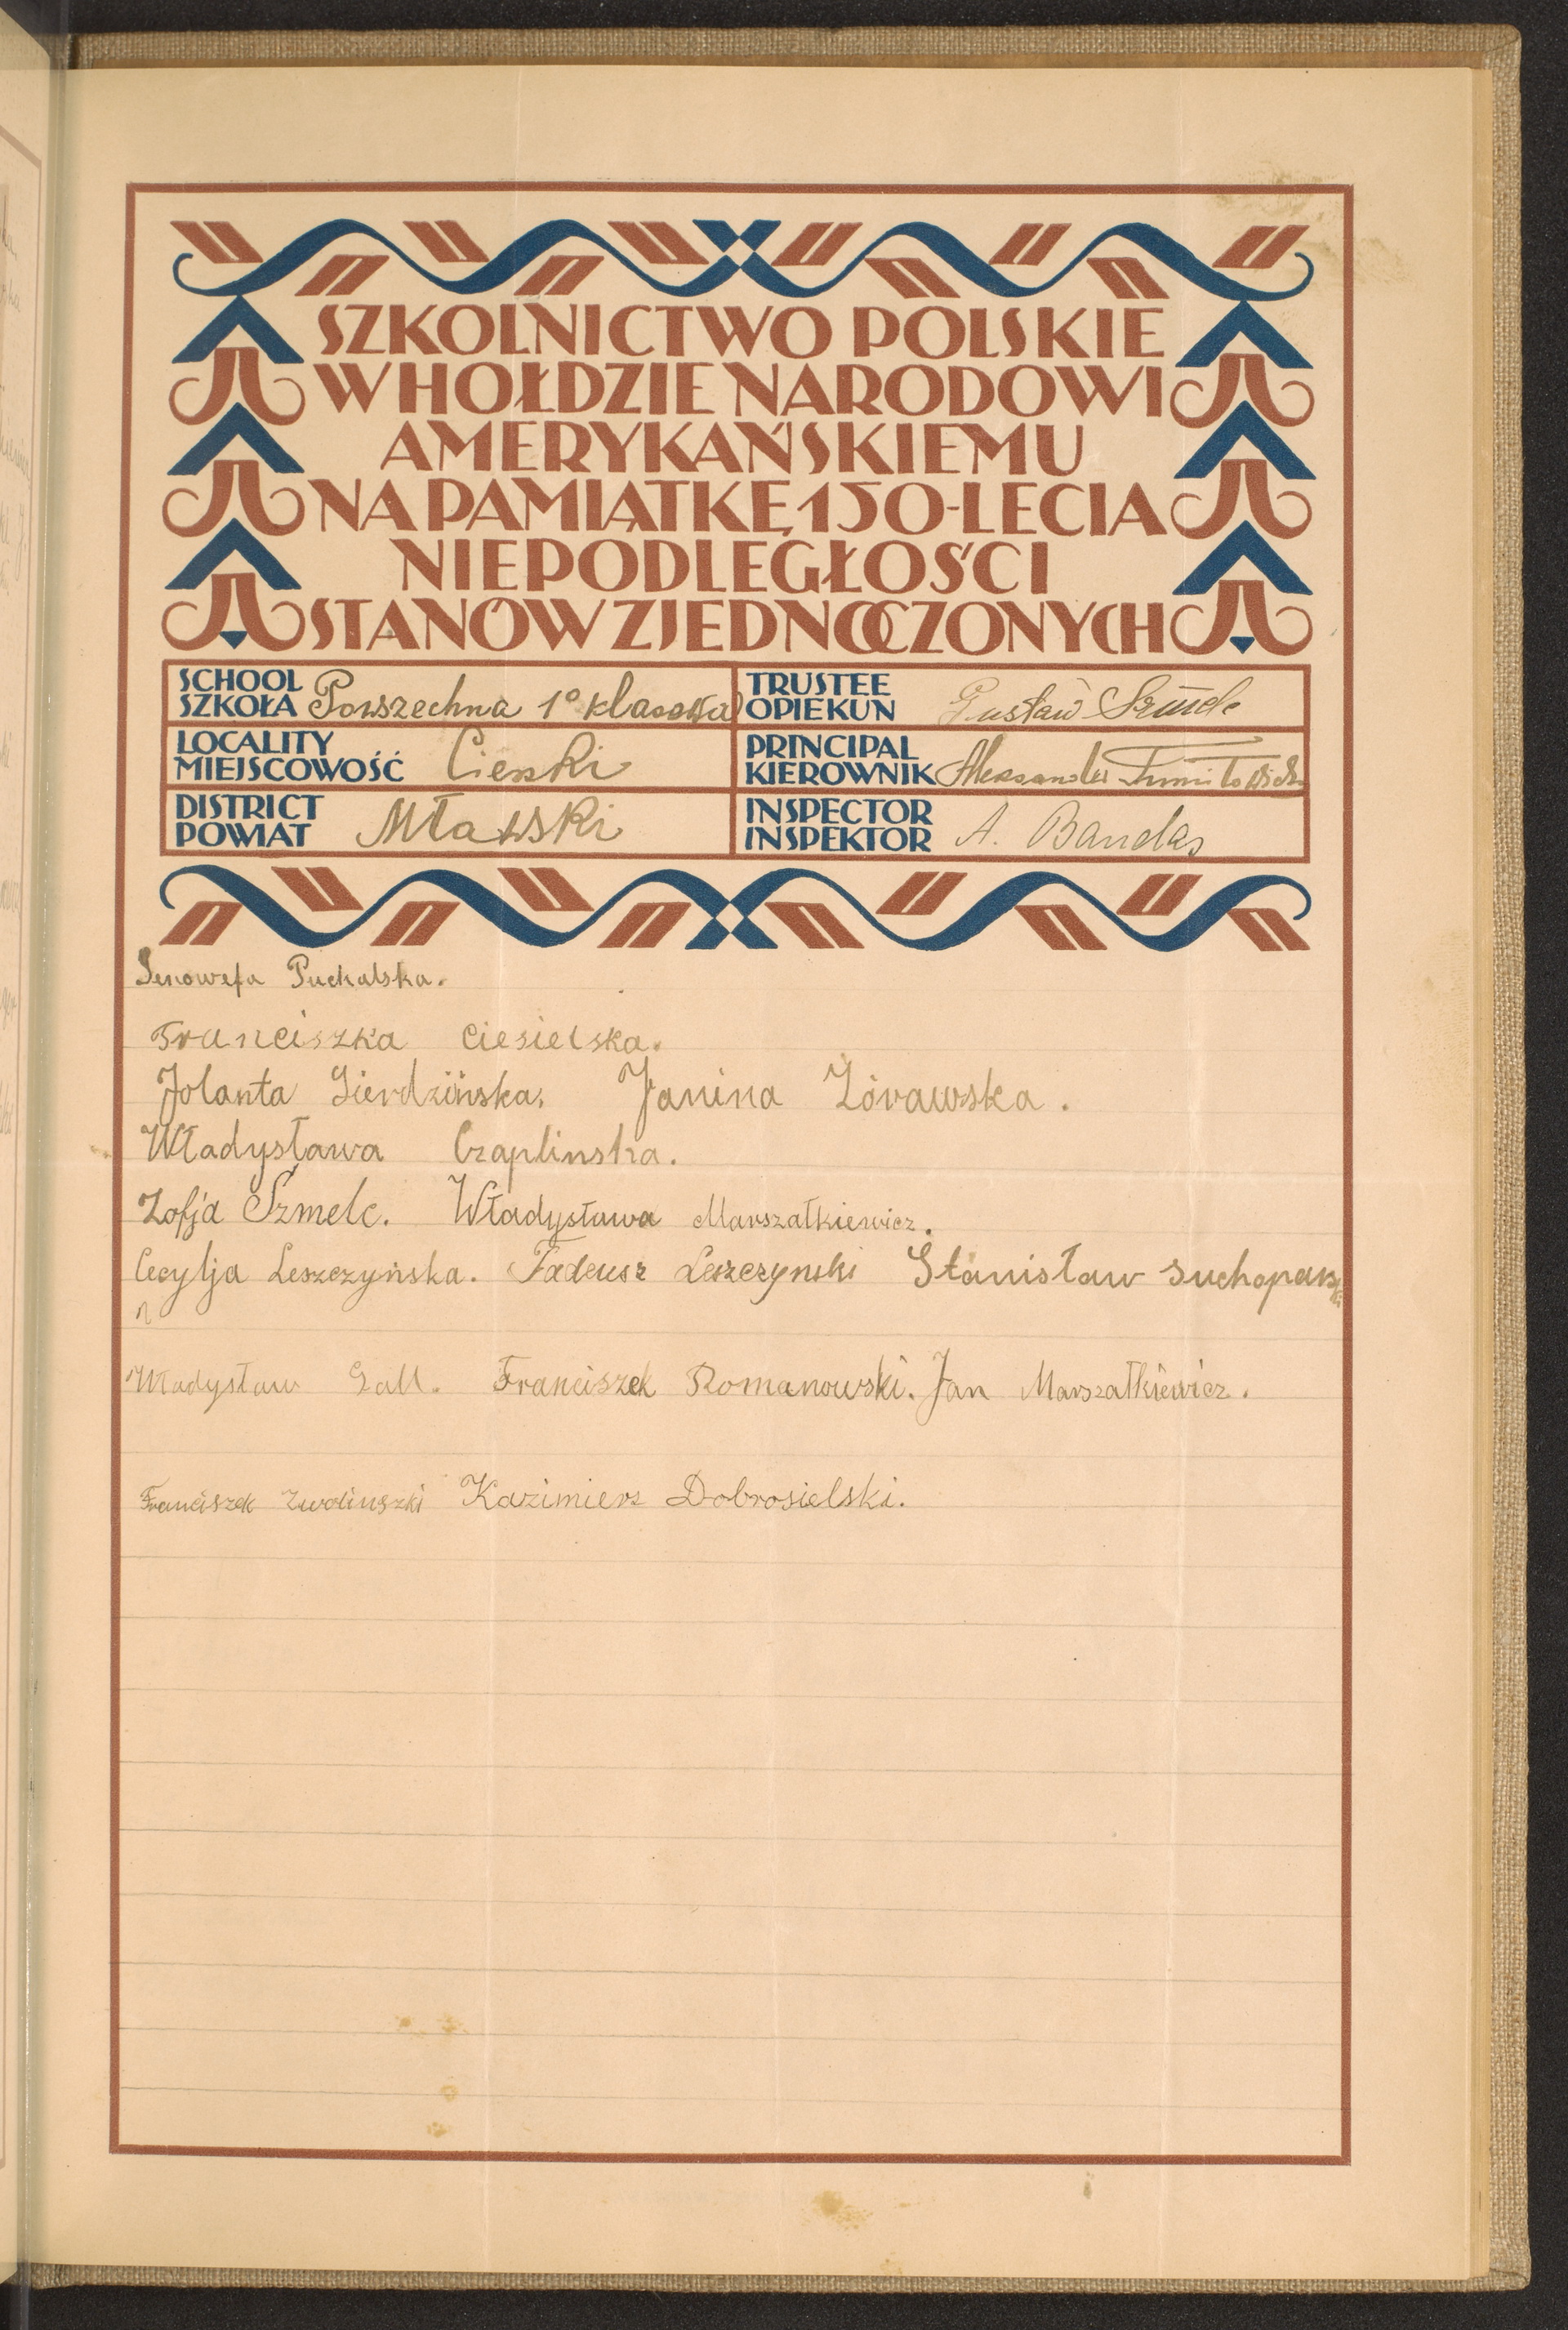 SZKOLNICTWO POLSKIE
W HOŁDZIE NARODOWI
AMERYKAŃSKIEMU
NA PAMIĄTKĘ 150-LECIA
NIEPODLEGŁOŚCI
STANÓW ZJEDNOCZONYCH
SCHOOL
SZKOŁA Powszechna 1º klasowa
TRUSTEE
OPIEKUN Gustaw
LOCALITY
MIEJSCOWOŚĆ Ciemski
PRINCIPAL
KIEROWNIK Aleksander
DISTRICT
POWIAT Mławski
INSPECTOR
INSPEKTOR A. Bandas
Genowefa Puchalska.
Franciszka Ciesielska.
Jolanta Sierdzińska. Janina Żórawska.
Władysława Czaplinska.
Zofja Szmelc. Władysława Marszałkiewicz.
Cecylja Leszczyńska. Tadeusz Leszczynski Stanisław Suchoparski
Władysław Gall. Franciszek Romanowski. Jan Marszałkiewicz.
Franciszek Zwolinszki Kazimierz Dobrosielski.